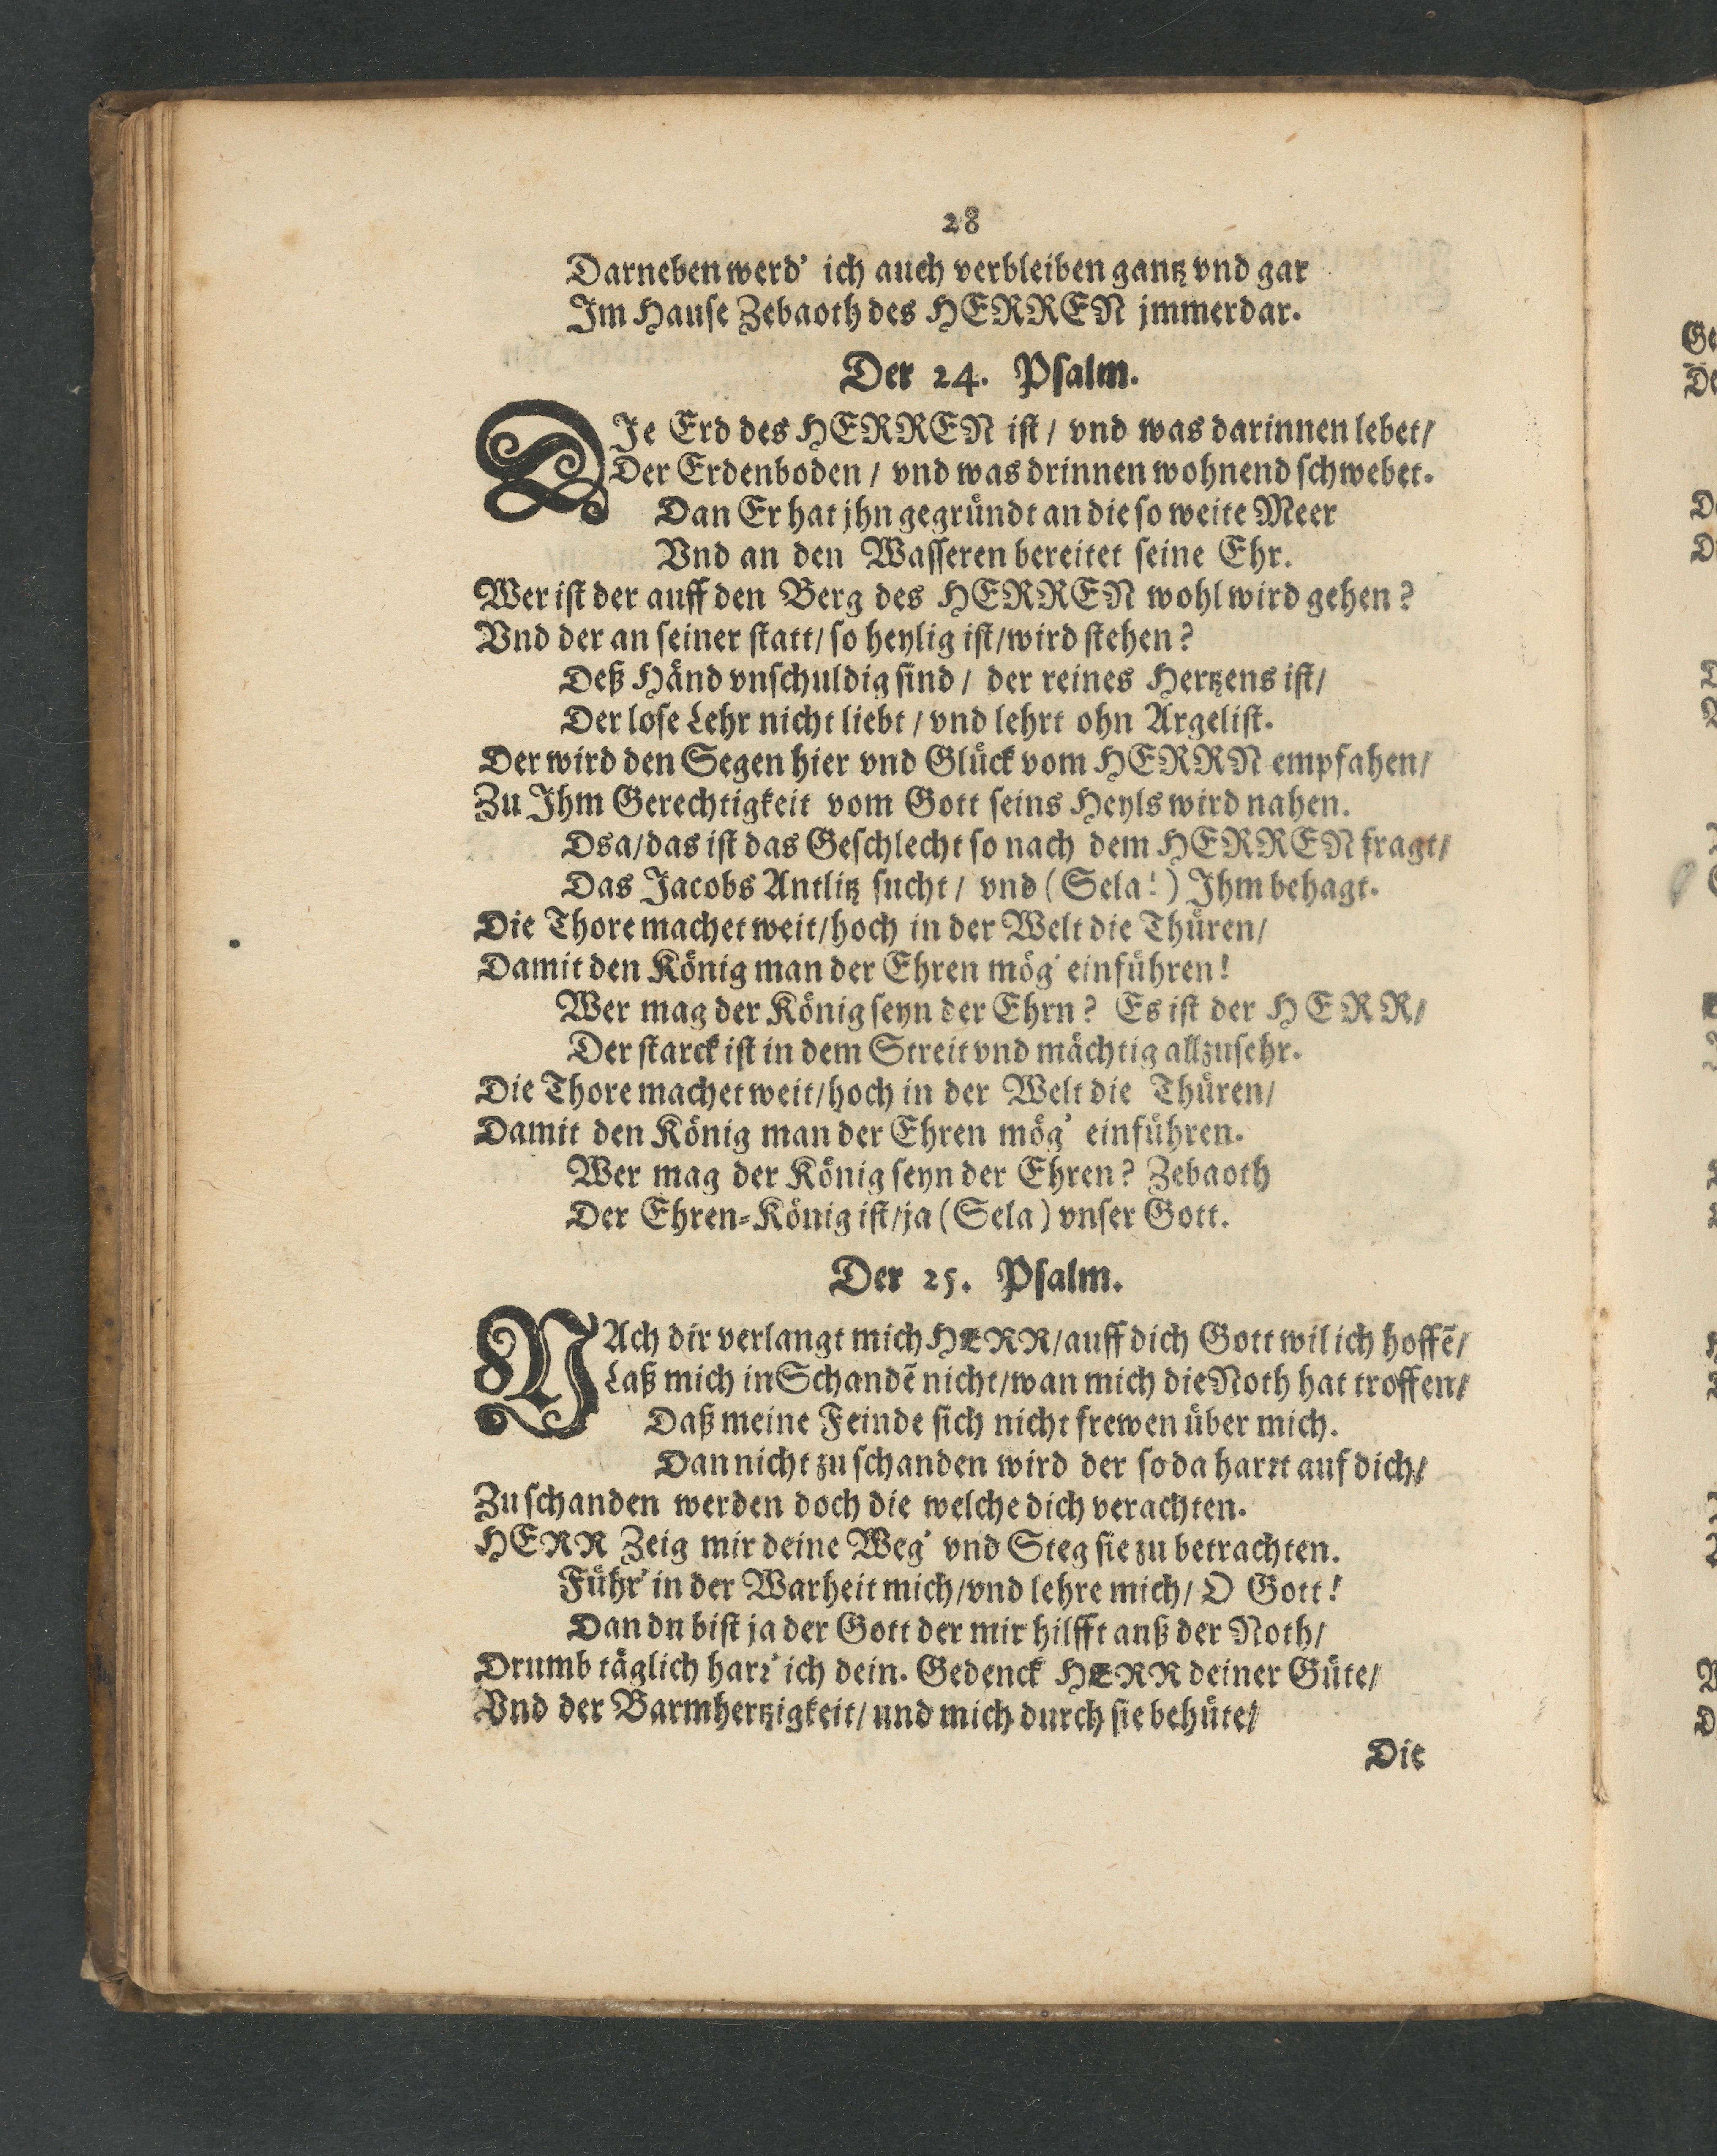 28
Darneben werd' ich auch verbleiben gantz vnd gar
Im Hause Zebaoth des HERREN jmmerdar.
Der 24. Psalm.
DJe Erd des HERREN ist / vnd was darinnen lebet/
Der Erdenboden / vnd was drinnen wohnend schwebet.
Dan Er hat jhn gegründt an die so weite Meer
Vnd an den Wasseren bereitet seine Ehr.
Wer ist der auff den Berg des HERREN wohl wird gehen?
Vnd der an seiner statt/ so heylig ist/wird stehen?
Deß Händ vnschuldig sind / der reines Hertzens ist/
Der lose Lehr nicht liebt / vnd lehrt ohn Argelist.
Der wird den Segen hier vnd Glück vom HERRN empfahen/
Zu Ihm Gerechtigkeit vom Gott seins Heyls wird nahen.
Dsa/das ist das Geschlecht so nach dem HERREN fragt/
Das Jacobs Antlitz sucht / vnd (Sela!) Ihm behagt.
Die Thore machet weit/hoch in der Welt die Thüren/
Damit den König man der Ehren mög' einführen!
Wer mag der König seyn der Ehrn? Es ist der HERR/
Der starck ist in dem Streit vnd mächtig allzusehr.
Die Thore machet weit/hoch in der Welt die Thüren/
Damit den König man der Ehren mög' einführen.
Wer mag der König seyn der Ehren? Zebaoth
Der Ehren-König ist/ja (Sela) vnser Gott.
Der 25. Psalm.
NAch dir verlangt mich HERR/auff dich Gott wil ich hoffẽ/
Laß mich in Schandẽ nicht/wan mich die Noth hat troffen/
Daß meine Feinde sich nicht frewen über mich.
Dan nicht zu schanden wird der so da harrt auf dich/
Zu schanden werden doch die welche dich verachten.
HERR Zeig mir deine Weg' vnd Steg sie zu betrachten.
Führ' in der Warheit mich/vnd lehre mich/ O Gott!
Dan dn bist ja der Gott der mir hilfft auß der Noth/
Drumb täglich harr' ich dein. Gedenck HERR deiner Güte/
Vnd der Barmhertzigkeit/ und mich durch sie behüte/
Die